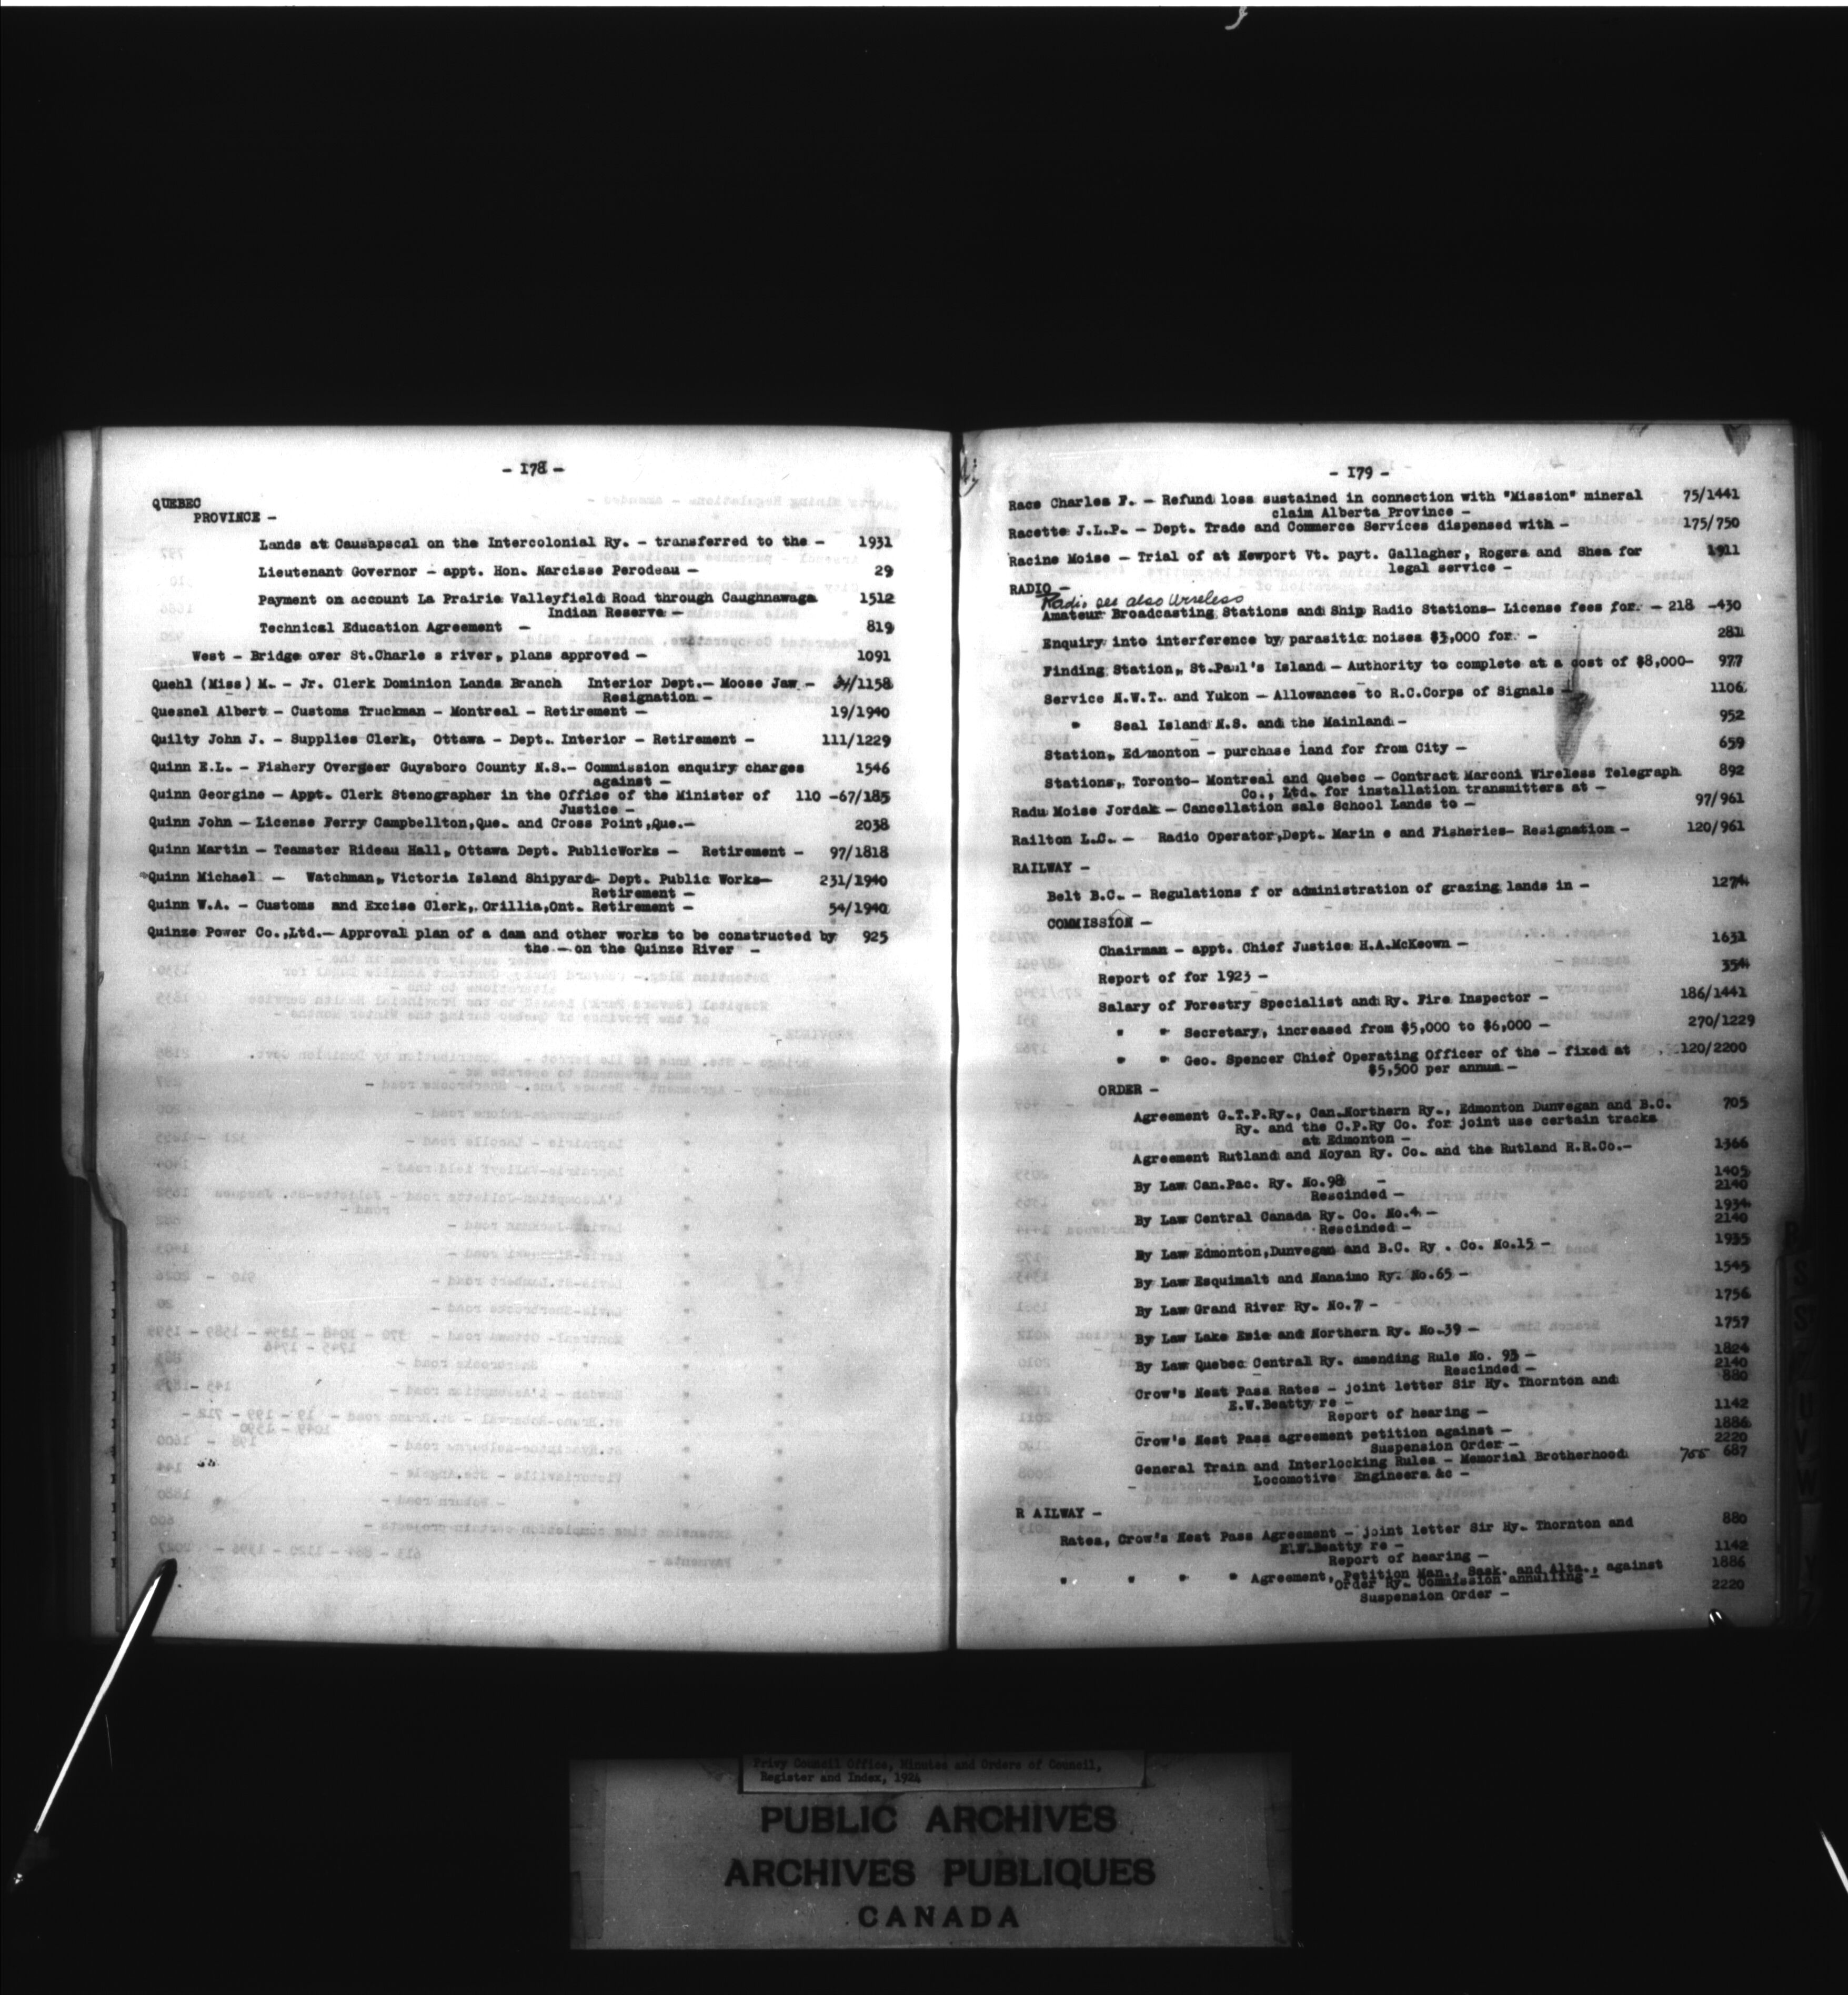 - 178 -
QUEBEC
PROVINCE -
Lands at Causapscal on the Intercolonial Ry. - transferred to the - 1931
Lieutenant Governor - appt. Hon. Narcisse Perodeau - 29
Payment on account La Prairie Valleyfield Road through Caughnawaga 1512
Indian Reserve -
Technical Education Agreement - 819
West - Bridge over St.Charle s river, plans approved - 1091
Quehl (Miss) M. - Jr. Clerk Dominion Lands Branch Interior Dept.- Moose Jaw - /1158
Resignation -
Quesnel Albert - Customs Truckman - Montreal - Retirement - 19/1940
Quilty John J. - Supplies Clerk, Ottawa - Dept. Interior - Retirement - 111/1229
Quinn E.L. - Fishery Overseer Guysboro County N.S.- Commission enquiry charges 1546
against -
Quinn Georgine - Appt. Clerk Stenographer in the Office of the Minister of 110 -67/185
Justice -
Quinn John - License Ferry Campbellton,Que. and Cross Point,Que.- 2038
Quinn Martin - Teamster Rideau Hall, Ottawa Dept. PublicWorks - Retirement - 97/1818
Quinn Michael - Watchman, Victoria Island Shipyard- Dept. Public Works- 231/1940
Retirement -
Quinn W.A. - Customs and Excise Clerk, Orillia,Ont. Retirement - 54/1940
Quinze Power Co.,Ltd.- Approval plan of a dam and other works to be constructed by 925
the - on the Quinze River -
- 179 -
Race Charles F. - Refund loss sustained in connection with "Mission" mineral 75/1441
claim Alberta Province -
Racette J.L.P. - Dept. Trade and Commerce Services dispensed with - 175/750
Racine Moise - Trial of at Newport Vt. payt. Gallagher, Rogers and Shea for 1911
legal service -
RADIO -
Radio see also Wireless
Amateur Broadcasting Stations and Ship Radio Stations- License fees for. - 218 -430
Enquiry into interference by parasitic noises $3,000 for - 281
Finding Station, St.Paul's Island - Authority to complete at a cost of $8,000- 977
Service N.W.T. and Yukon - Allowances to R.C.Corps of Signals - 1106
" Seal Island N.S. and the Mainland - 952
Station, Edmonton - purchase land for from City - 659
Stations, Toronto- Montreal and Quebec - Contract Marconi Wireless Telegraph 892
Co., Ltd. for installation transmitters at -
Radu Moise Jordak - Cancellation sale School Lands to - 97/961
Railton L.C. - Radio Operator,Dept. Marin e and Fisheries- Resignation - 120/961
RAILWAY -
Belt B.C. - Regulations f or administration of grazing lands in - 1274
COMMISSION -
Chairman - appt. Chief Justice H.A.McKeown - 1631
Report of for 1923 - 354
Salary of Forestry Specialist and Ry. Fire Inspector - 186/1441
" " Secretary, increased from $5,000 to $6,000 - 270/1229
" " Geo. Spencer Chief Operating Officer of the - fixed at 120/2200
$5,500 per annum -
ORDER -
Agreement G.T.P.Ry., Can.Northern Ry., Edmonton Dunvegan and B.C. 705
Ry. and the C.P.Ry Co. for joint use certain tracks
at Edmonton -
Agreement Rutland and Noyan Ry. Co. and the Rutland R.R.Co.- 1366
By Law Can.Pac. Ry. No.98 - 1405
Rescinded - 2140
By Law Central Canada Ry. Co. No.4 - 1934
Rescinded - 2140
By Law Edmonton,Dunvegan and B.C. Ry . Co. No.15 - 1935
By Law Esquimalt and Nanaimo Ry. No.65 - 1545
By Law Grand River Ry. No.7 - 1756
By Law Lake Erie and Northern Ry. No.39 - 1757
By Law Quebec Central Ry. amending Rule No. 93 - 1824
Rescinded - 2140
Crow's Nest Pass Rates - joint letter Sir Hy. Thornton and 880
E.W.Beatty re -
Report of hearing - 1142
Crow's Nest Pass agreement petition against - 1886
Suspension Order - 2220
General Train and Interlocking Rules - Memorial Brotherhood 687
Locomotive Engineers &c -
R AILWAY -
Rates, Crow's Nest Pass Agreement - joint letter Sir Hy. Thornton and 880
E.W.Beatty re -
Report of hearing - 1142
" " " " Agreement, Petition Man., Sask. and Alta., against 1886
Order Ry. Commission annulling -
Suspension Order - 2220
Privy Council Office, Minutes and Orders of Council,
Register and Index, 1924
PUBLIC ARCHIVES
ARCHIVES PUBLIQUES
CANADA